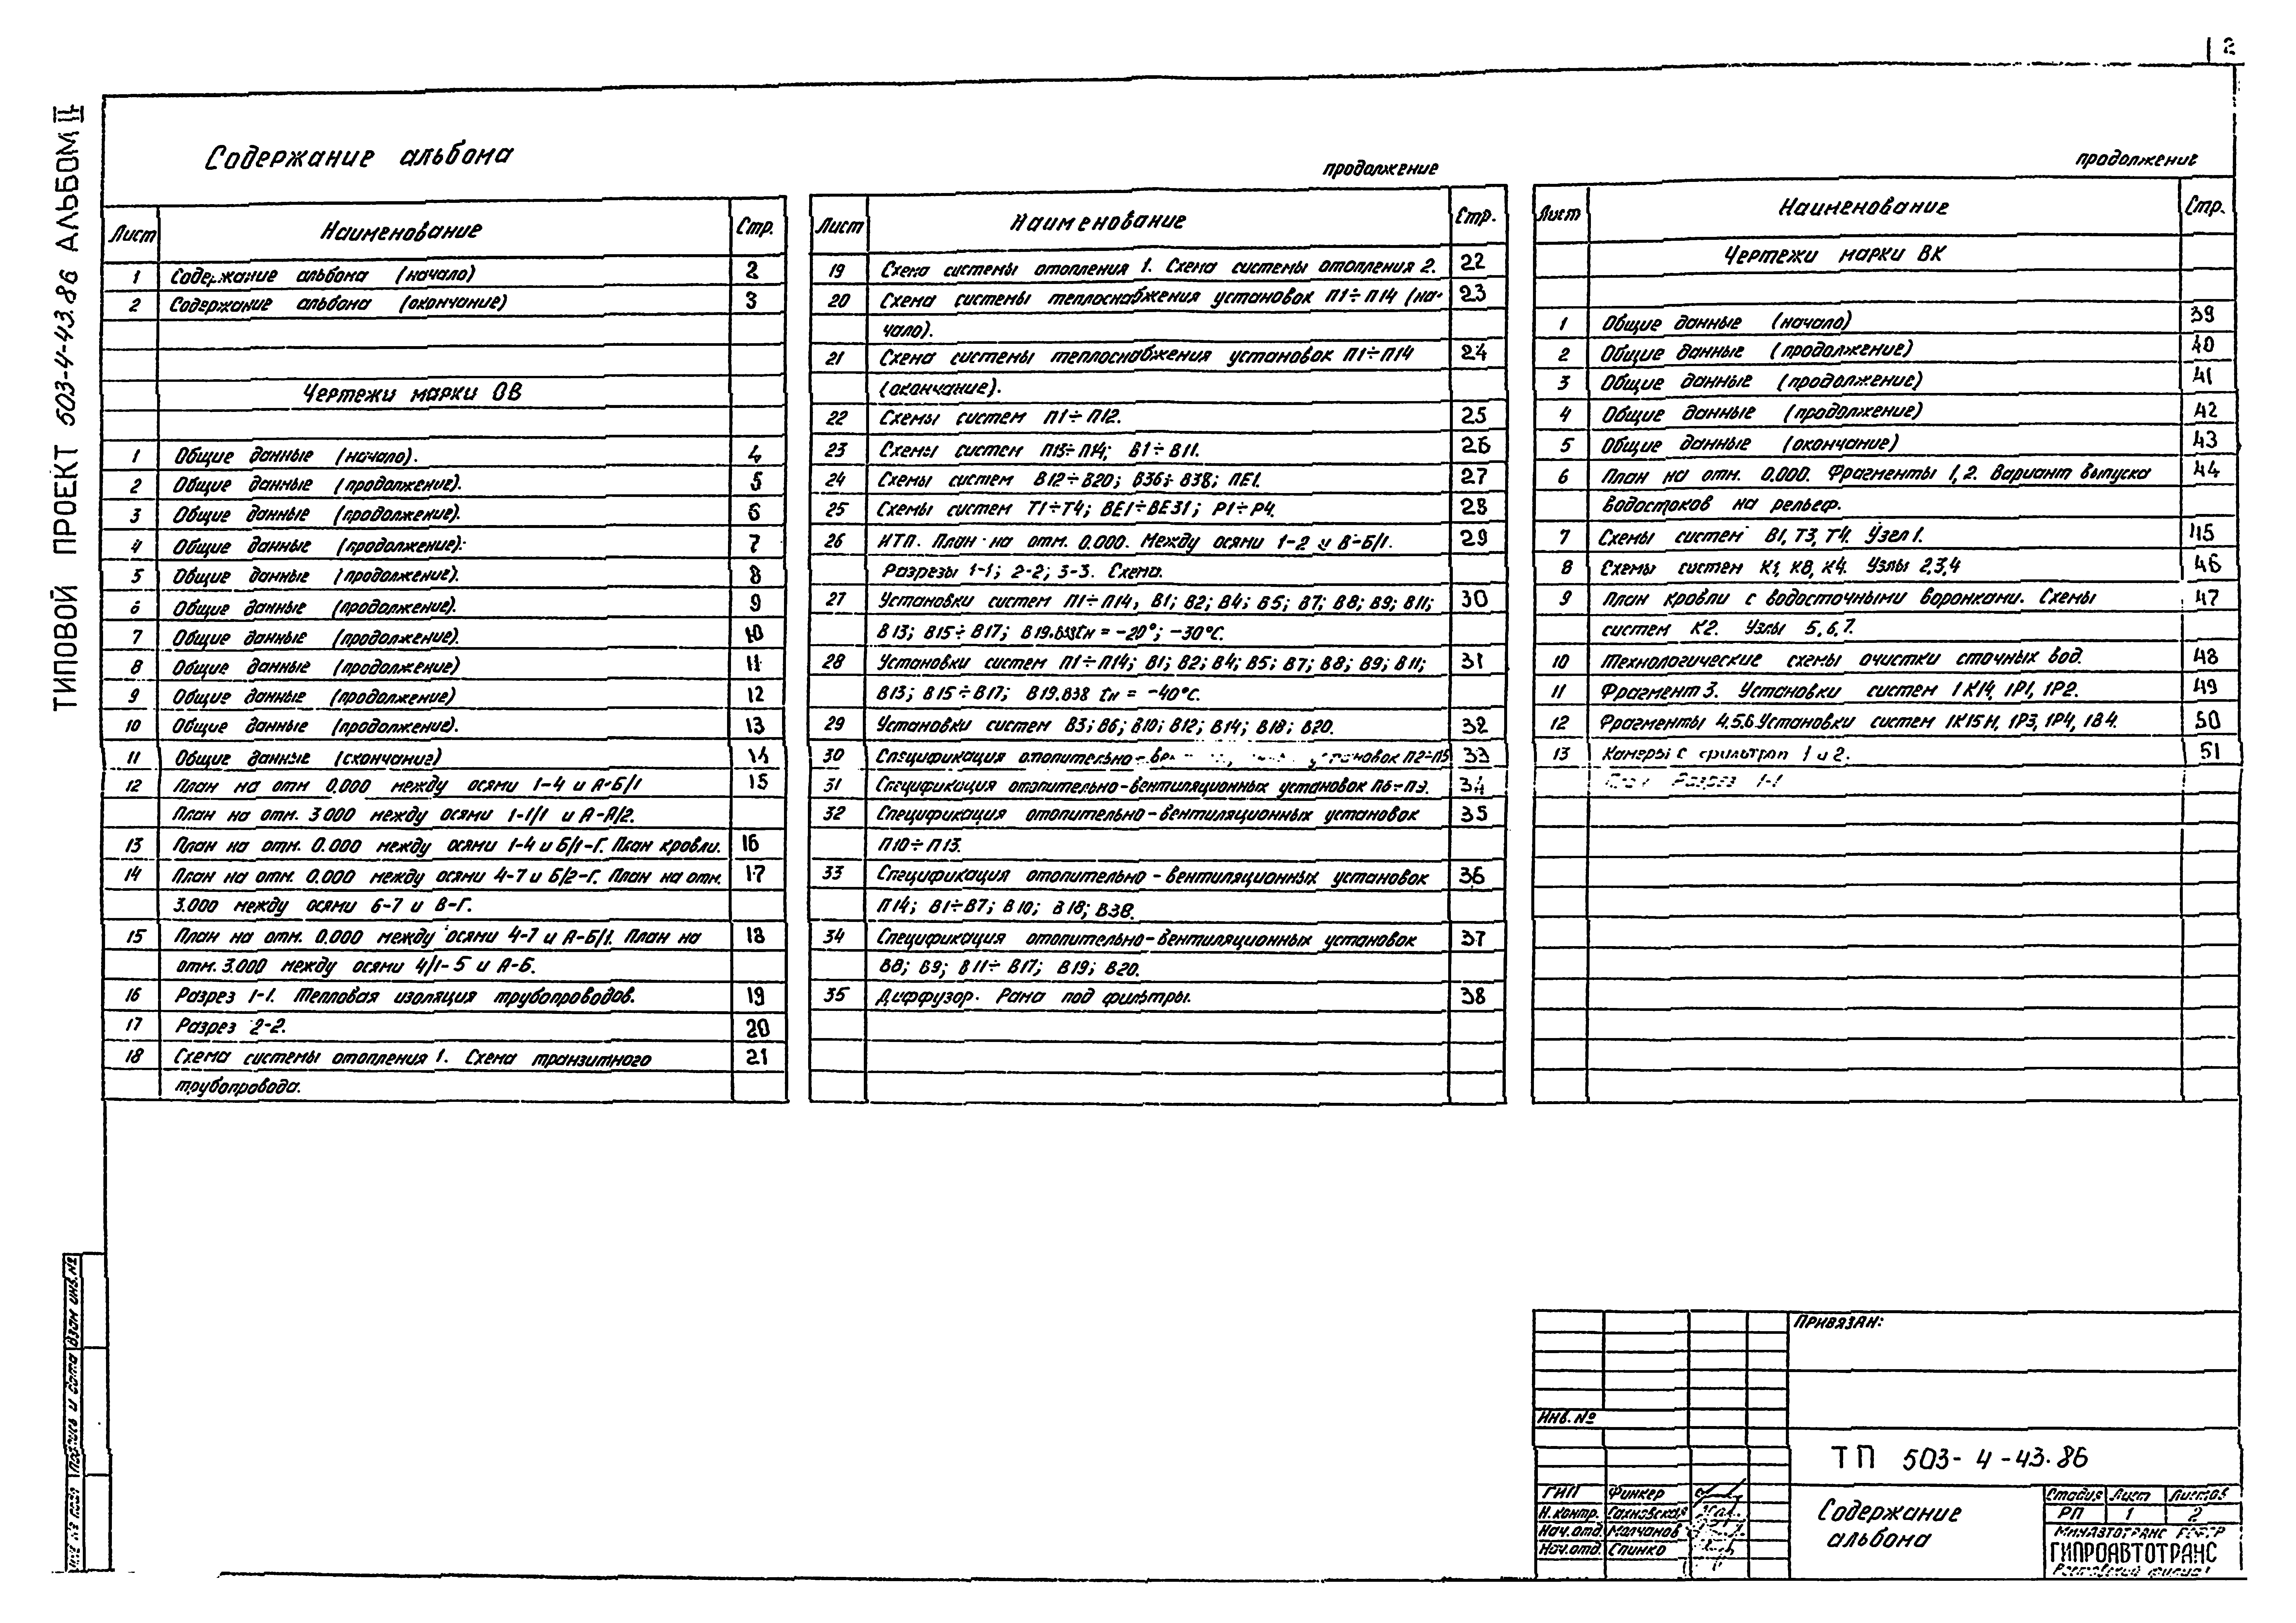 2
ТИПОВОЙ ПРОЕКТ 503-4-43.86 АЛЬБОМ II
Содержание альбома
Лист Наименование Стр.
1 Содержание альбома (начало) 2
2 Содержание альбома (окончание) 3
Чертежи марки ОВ
1 Общие данные (начало). 4
2 Общие данные (продолжение). 5
3 Общие данные (продолжение). 6
4 Общие данные (продолжение). 7
5 Общие данные (продолжение). 8
6 Общие данные (продолжение). 9
7 Общие данные (продолжение). 10
8 Общие данные (продолжение) 11
9 Общие данные (продолжение) 12
10 Общие данные (продолжение). 13
11 Общие данные (окончание) 14
12 План на отм 0.000 между осями 1-4 и А-Б/1 15
План на отм. 3 000 между осями 1-1/1 и А-А/2.
13 План на отм. 0.000 между осями 1-4 и Б/1-Г. План кровли. 16
14 План на отм. 0.000 между осями 4-7 и Б/2-Г. План на отм. 17
3.000 между осями 6-7 и В-Г.
15 План на отм. 0.000 между осями 4-7 и А-Б/1. План на 18
отм. 3.000 между осями 4/1-5 и А-Б.
16 Разрез 1-1. Тепловая изоляция трубопроводов. 19
17 Разрез 2-2. 20
18 Схема системы отопления 1. Схема транзитного 21
трубопровода.
продолжение
Лист Наименование Стр.
19 Схема системы отопления 1. Схема системы отопления 2. 22
20 Схема системы теплоснабжения установок П1÷П14 (на- 23
чало).
21 Схема системы теплоснабжения установок П1÷П14 24
(окончание).
22 Схемы систем П1÷П12. 25
23 Схемы систем П13÷П14; В1÷В11. 26
24 Схемы систем В12÷В20; В36÷В38; ПЕ1. 27
25 Схемы систем Т1÷Т4; ВЕ1÷ВЕ31; Р1÷Р4. 28
26 ИТП. План на отм. 0.000. Между осями 1-2 и В-Б/1. 29
Разрезы 1-1; 2-2; 3-3. Схема.
27 Установки систем П1÷П14, В1; В2; В4; В5; В7; В8; В9; В11; 30
В13; В15÷В17; В19.В38 tн = -20°; -30°С.
28 Установки систем П1÷П14; В1; В2; В4; В5; В7; В8; В9; В11; 31
В13; В15÷В17; В19.В38 tн = -40°С.
29 Установки систем В3; В6; В10; В12; В14; В18; В20. 32
30 Спецификация отопительно- установок П2÷П5 33
31 Спецификация отопительно-вентиляционных установок П6÷П9. 34
32 Спецификация отопительно-вентиляционных установок 35
П10÷П13.
33 Спецификация отопительно-вентиляционных установок 36
П14; В1÷В7; В10; В18; В38.
34 Спецификация отопительно-вентиляционных установок 37
В8; В9; В11÷В17; В19; В20.
35 Диффузор. Рама под фильтры. 38
продолжение
Лист Наименование Стр.
Чертежи марки ВК
1 Общие данные (начало) 39
2 Общие данные (продолжение) 40
3 Общие данные (продолжение) 41
4 Общие данные (продолжение) 42
5 Общие данные (окончание) 43
6 План на отм. 0.000. Фрагменты 1, 2. Вариант выпуска 44
водостоков на рельеф.
7 Схемы систем В1, Т3, Т4. Узел 1. 45
8 Схемы систем К1, К8, К4. Узлы 2,3,4 46
9 План кровли с водосточными воронками. Схемы 47
систем К2. Узлы 5,6,7.
10 Технологические схемы очистки сточных вод. 48
11 Фрагмент 3. Установки систем 1К14, 1Р1, 1Р2. 49
12 Фрагменты 4.5.6. Установки систем 1К15Н, 1Р3, 1Р4, 1В4. 50
13 Камеры с фильтрап 1 и 2. 51
Разрез 1-1
Взам инв. №
Подпись и дата
Инв № подл
Привязан:
Инв. №
ТП 503-4-43.86
ГИП Финкер
Н.контр. Сахновская
Нач.отд. Молчанов
Нач.отд. Спинко
Содержание
альбома
Стадия Лист Листов
РП 1 2
Минавтотранс РСФСР
ГИПРОАВТОТРАНС
Ростовский филиал